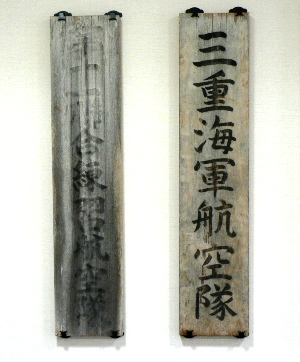 三重海軍航空隊
合練習航空隊